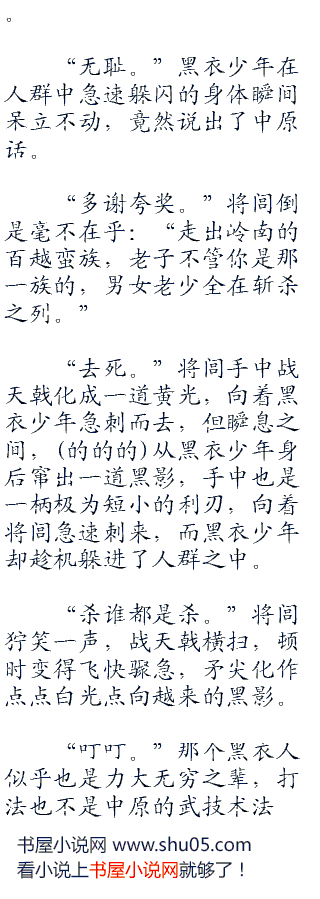 。
“无耻。”黑衣少年在
人群中急速躲闪的身体瞬间
呆立不动，竟然说出了中原
话。
“多谢夸奖。”将闾倒
是毫不在乎：“走出岭南的
百越蛮族，老子不管你是那
一族的，男女老少全在斩杀
之列。”
“去死。”将闾手中战
天戟化成一道黄光，向着黑
衣少年急刺而去，但瞬息之
间，(的的的)从黑衣少年身
后窜出一道黑影，手中也是
一柄极为短小的利刃，向着
将闾急速刺来，而黑衣少年
却趁机躲进了人群之中。
“杀谁都是杀。”将闾
狞笑一声，战天戟横扫，顿
时变得飞快骤急，矛尖化作
点点白光点向越来的黑影。
“叮叮。”那个黑衣人
似乎也是力大无穷之辈，打
法也不是中原的武技术法
书屋小说网 www.shu05.com
看小说上书屋小说网就够了！